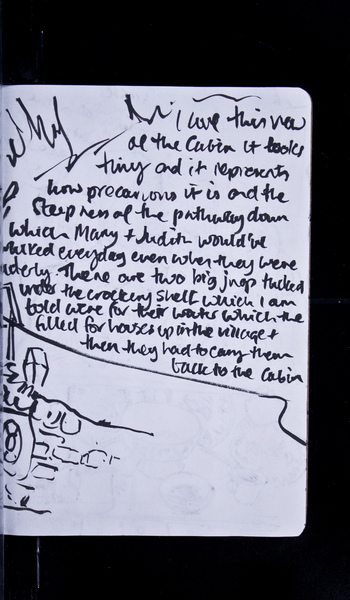 I love this view
of the Cabin it looks
tiny and it represents
how precarious it is and the
steepness of the pathway down
which Mary + Judith would've
walked everyday even when they were
elderly. There are two big jugs tucked
under the crockery shelf which I am
told were for their water which the
filled for houses up in the village +
then they had to carry them
back to the Cabin